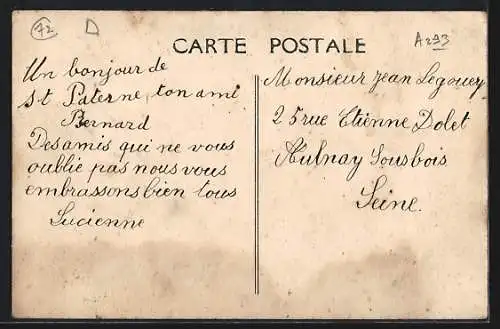 72 D A293
CARTE POSTALE
Un bonjour de
St Paterne, ton ami
Bernard
Des amis qui ne vous
oublie pas nous vous
embrassons bien tous
Lucienne
Monsieur Jean Legouey
25 rue Etienne Dolet
Aulnay Sousbois
Seine.